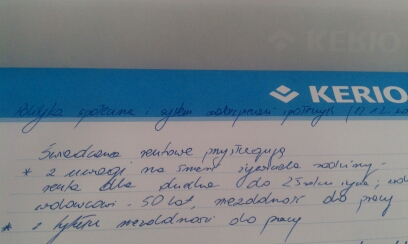 KERIO
KERIO
Polityka społeczna i system zabezpieczeń społecznych (12.12.
Świadczenia rentowe przysługują
* z uwagi na śmierć żywiciela rodziny -
renta dla dziecka do 25 roku życia,
wdowcowi - 50 lat, niezdolność do pracy
* z tytułu niezdolności do pracy